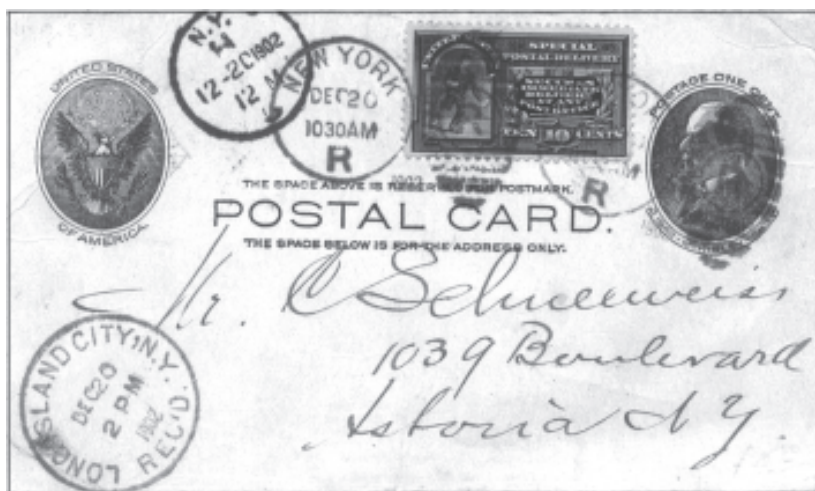 N.Y.
12-20 1902
12 M
NEW YORK
DEC 20
1030AM
R
SPECIAL
POSTAL DELIVERY
TEN 10 CENTS
R
UNITED STATES
OF AMERICA
POSTAGE ONE CENT
THE SPACE ABOVE IS RESERVED FOR POSTMARK.
POSTAL CARD.
THE SPACE BELOW IS FOR THE ADDRESS ONLY.
Mr. C Schneeweiss
1039 Boulevard
Astoria N Y.
LONG ISLAND CITY, N.Y.
DEC 20
2 PM
1902
REC'D